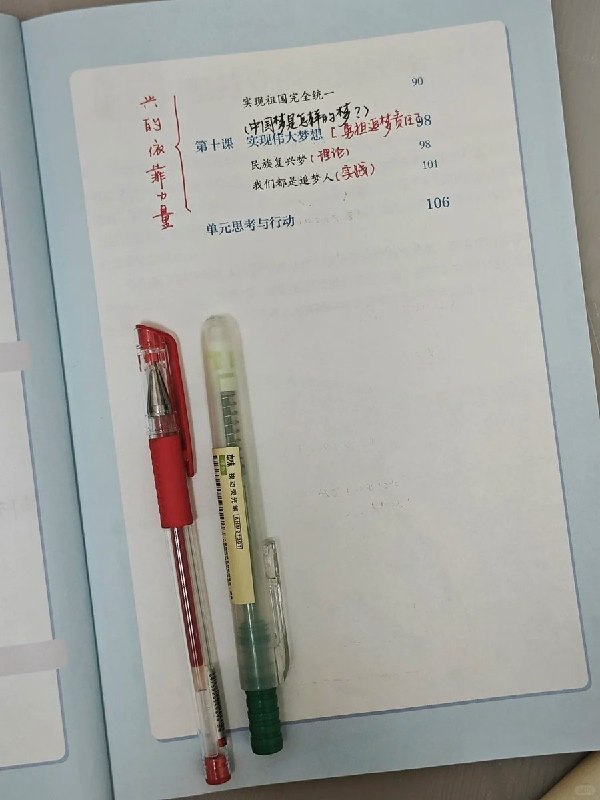 实现祖国完全统一 90
(中国梦是怎样的梦?)
第十课 实现伟大梦想 98
民族复兴梦(理论) 98
我们都是追梦人(实践) 101
单元思考与行动 106
兴的依靠力量